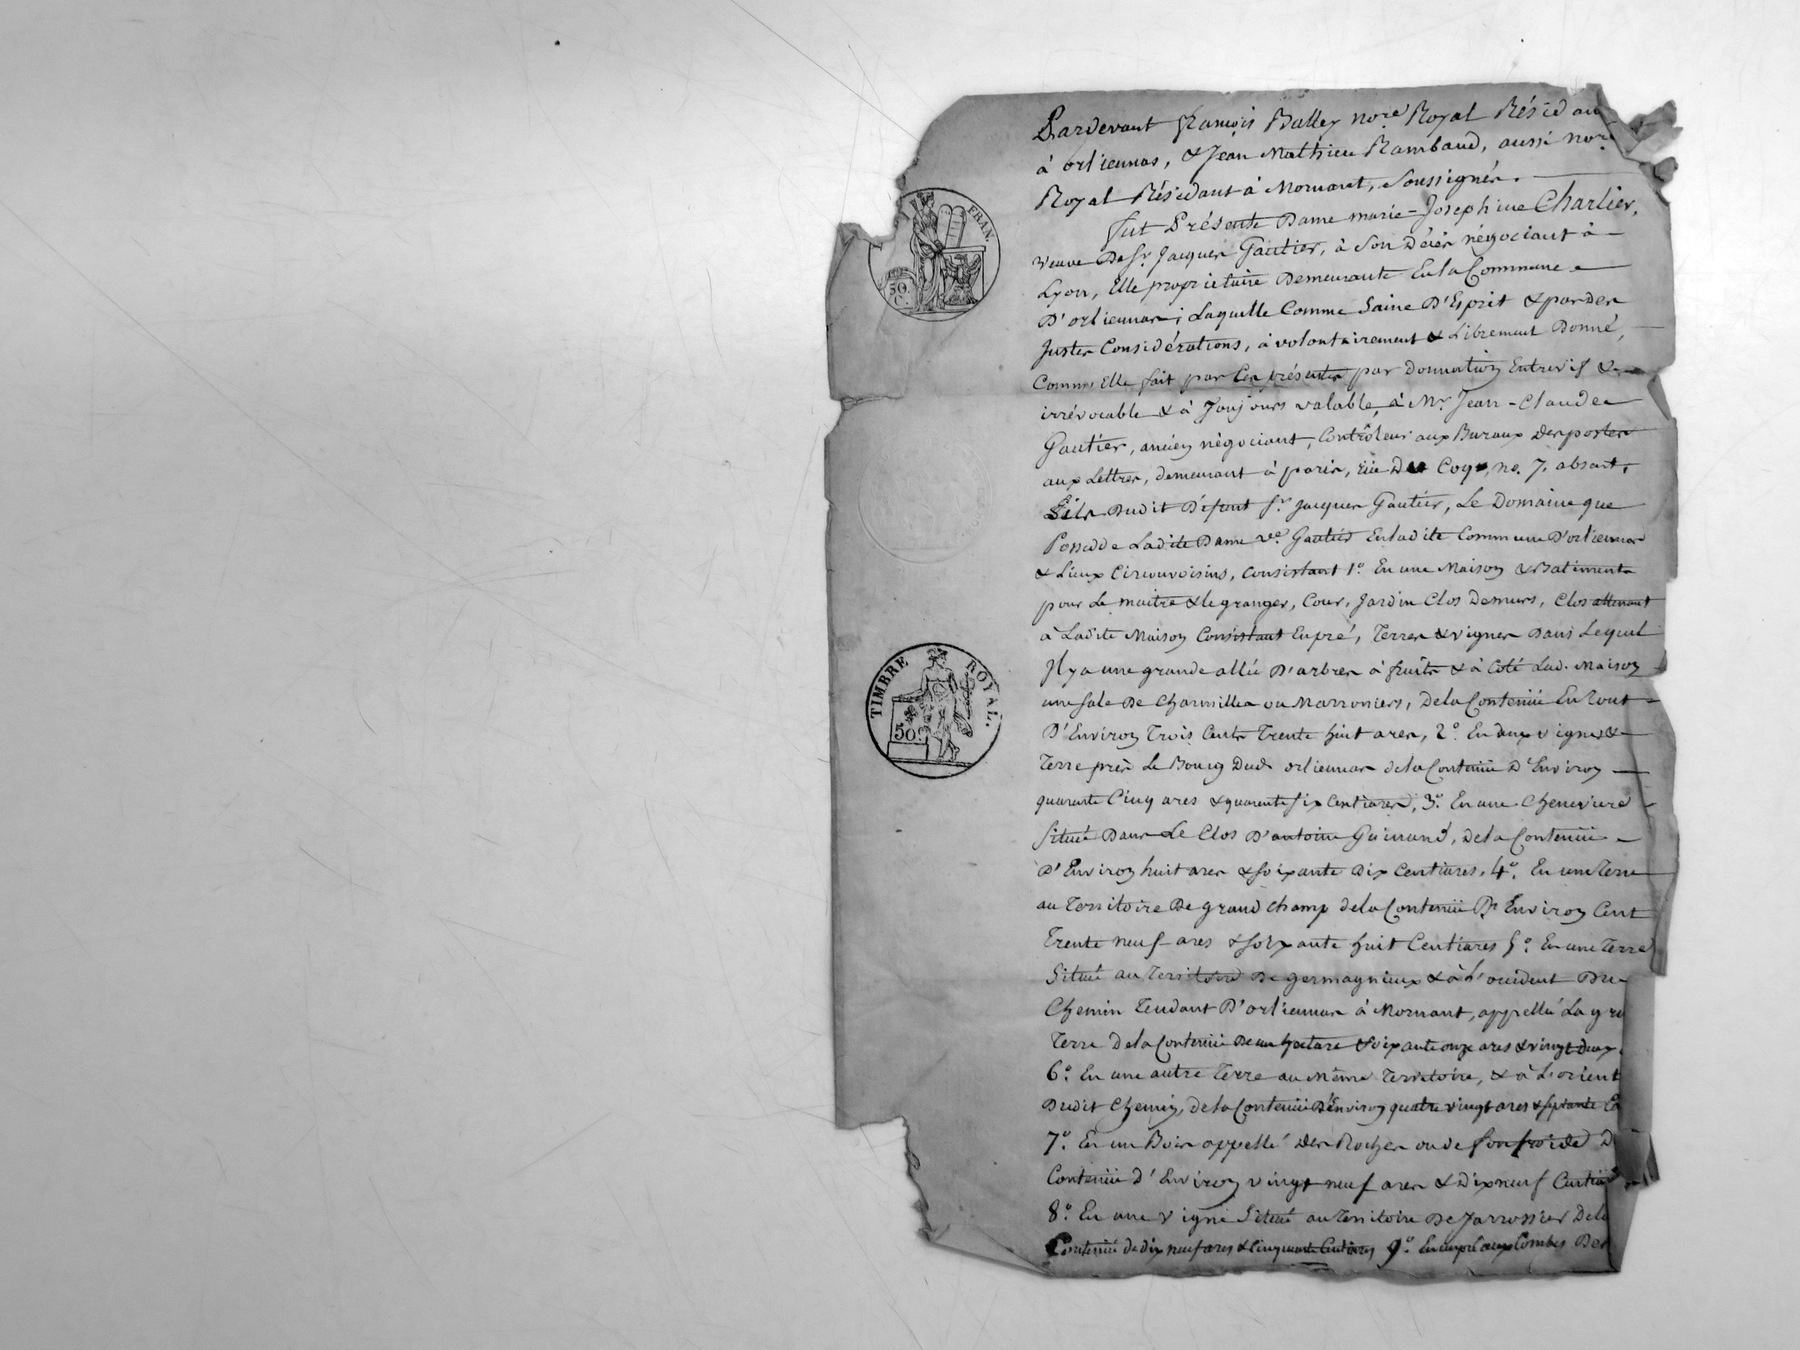 Pardevant françois Balley no.re Royal Résidant
à orliennas, & Jean Mathieu Rambaud, aussi no.re
Royal Résidant à Mornant, Soussignés.
FRAN.
fut Présente Dame marie-Josephine Charlier,
veuve De Sr. Jacques Gautier, à Son Décès négociant à
50. C.
Lyon, Elle proprietaire Demeurante En la Commune
D'orliennas; Laquelle Comme Saine D'Esprit & par Des
Justes Considérations, à volontairement & Librement Donné,
Comme Elle fait par Ces présentes par donnation Entrevif &
irrévocable & à Toujours valable, à Mr. Jean-Claude
Gautier, ancien négociant, Contrôleur aux Buraux Des postes
aux Lettres, demeurant à paris, rüe Du Coq, no. 7. absent,
fils Dudit Défunt Sr. Jacques Gautier, Le Domaine que
Possede Ladite Dame ve. Gautier En ladite Commune D'orliennas
& Lieux Circonvoisins, Consistant 1.o En une Maison & Batiments
pour Le maitre & le granger, Cour, Jardin Clos De murs, Clos attenant
à Ladite Maison Consistant En pré, Terres & vignes Dans Lequel
TIMBRE ROYAL.
Il y a une grande allée D'arbres à fruits & à Coté Lad. Maison
une sale De Charmilles ou Marroniers, de la Contenüe En Tout
50.
D'Environ Trois Cents Trente huit ares, 2.o En deux vignes &
Terre près Le Bourg Dud. orliennas de la Contenüe D'Environ
quarante Cinq ares & quarante six Centiares, 3.o En une Chenevière
Située Dans Le Clos D'antoine Guinand, de la Contenüe
D'Environ huit ares & soixante Dix Centiares, 4.o En une Terre
au Territoire De grand Champ de la Contenüe D'Environ Cent
Trente neuf ares & soixante huit Centiares 5.o En une Terre
Située au Territoire De germagnieux & à L'occident Du
Chemin Tendant D'orliennas à Mornant, appellée La
Terre de la Contenüe De un hectare & soixante onze ares & vingt deux
6.o En une autre Terre au Même Territoire, & à L'orient
Dudit Chemin, de la Contenüe D'Environ quatre vingt ares & septante
7.o En un Bois appellé Des Roches ou de fonfroide
Contenüe d'Environ vingt neuf ares & Dix neuf
8.o En une vigne Située au Territoire De Jarrossier De la
Contenüe de dix neuf ares & Cinquante Centiares 9.o En un pré aux Combes Des